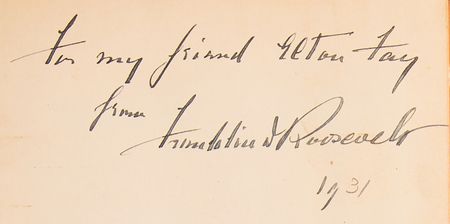 For my friend Elton Fay
from
Franklin D Roosevelt
1931